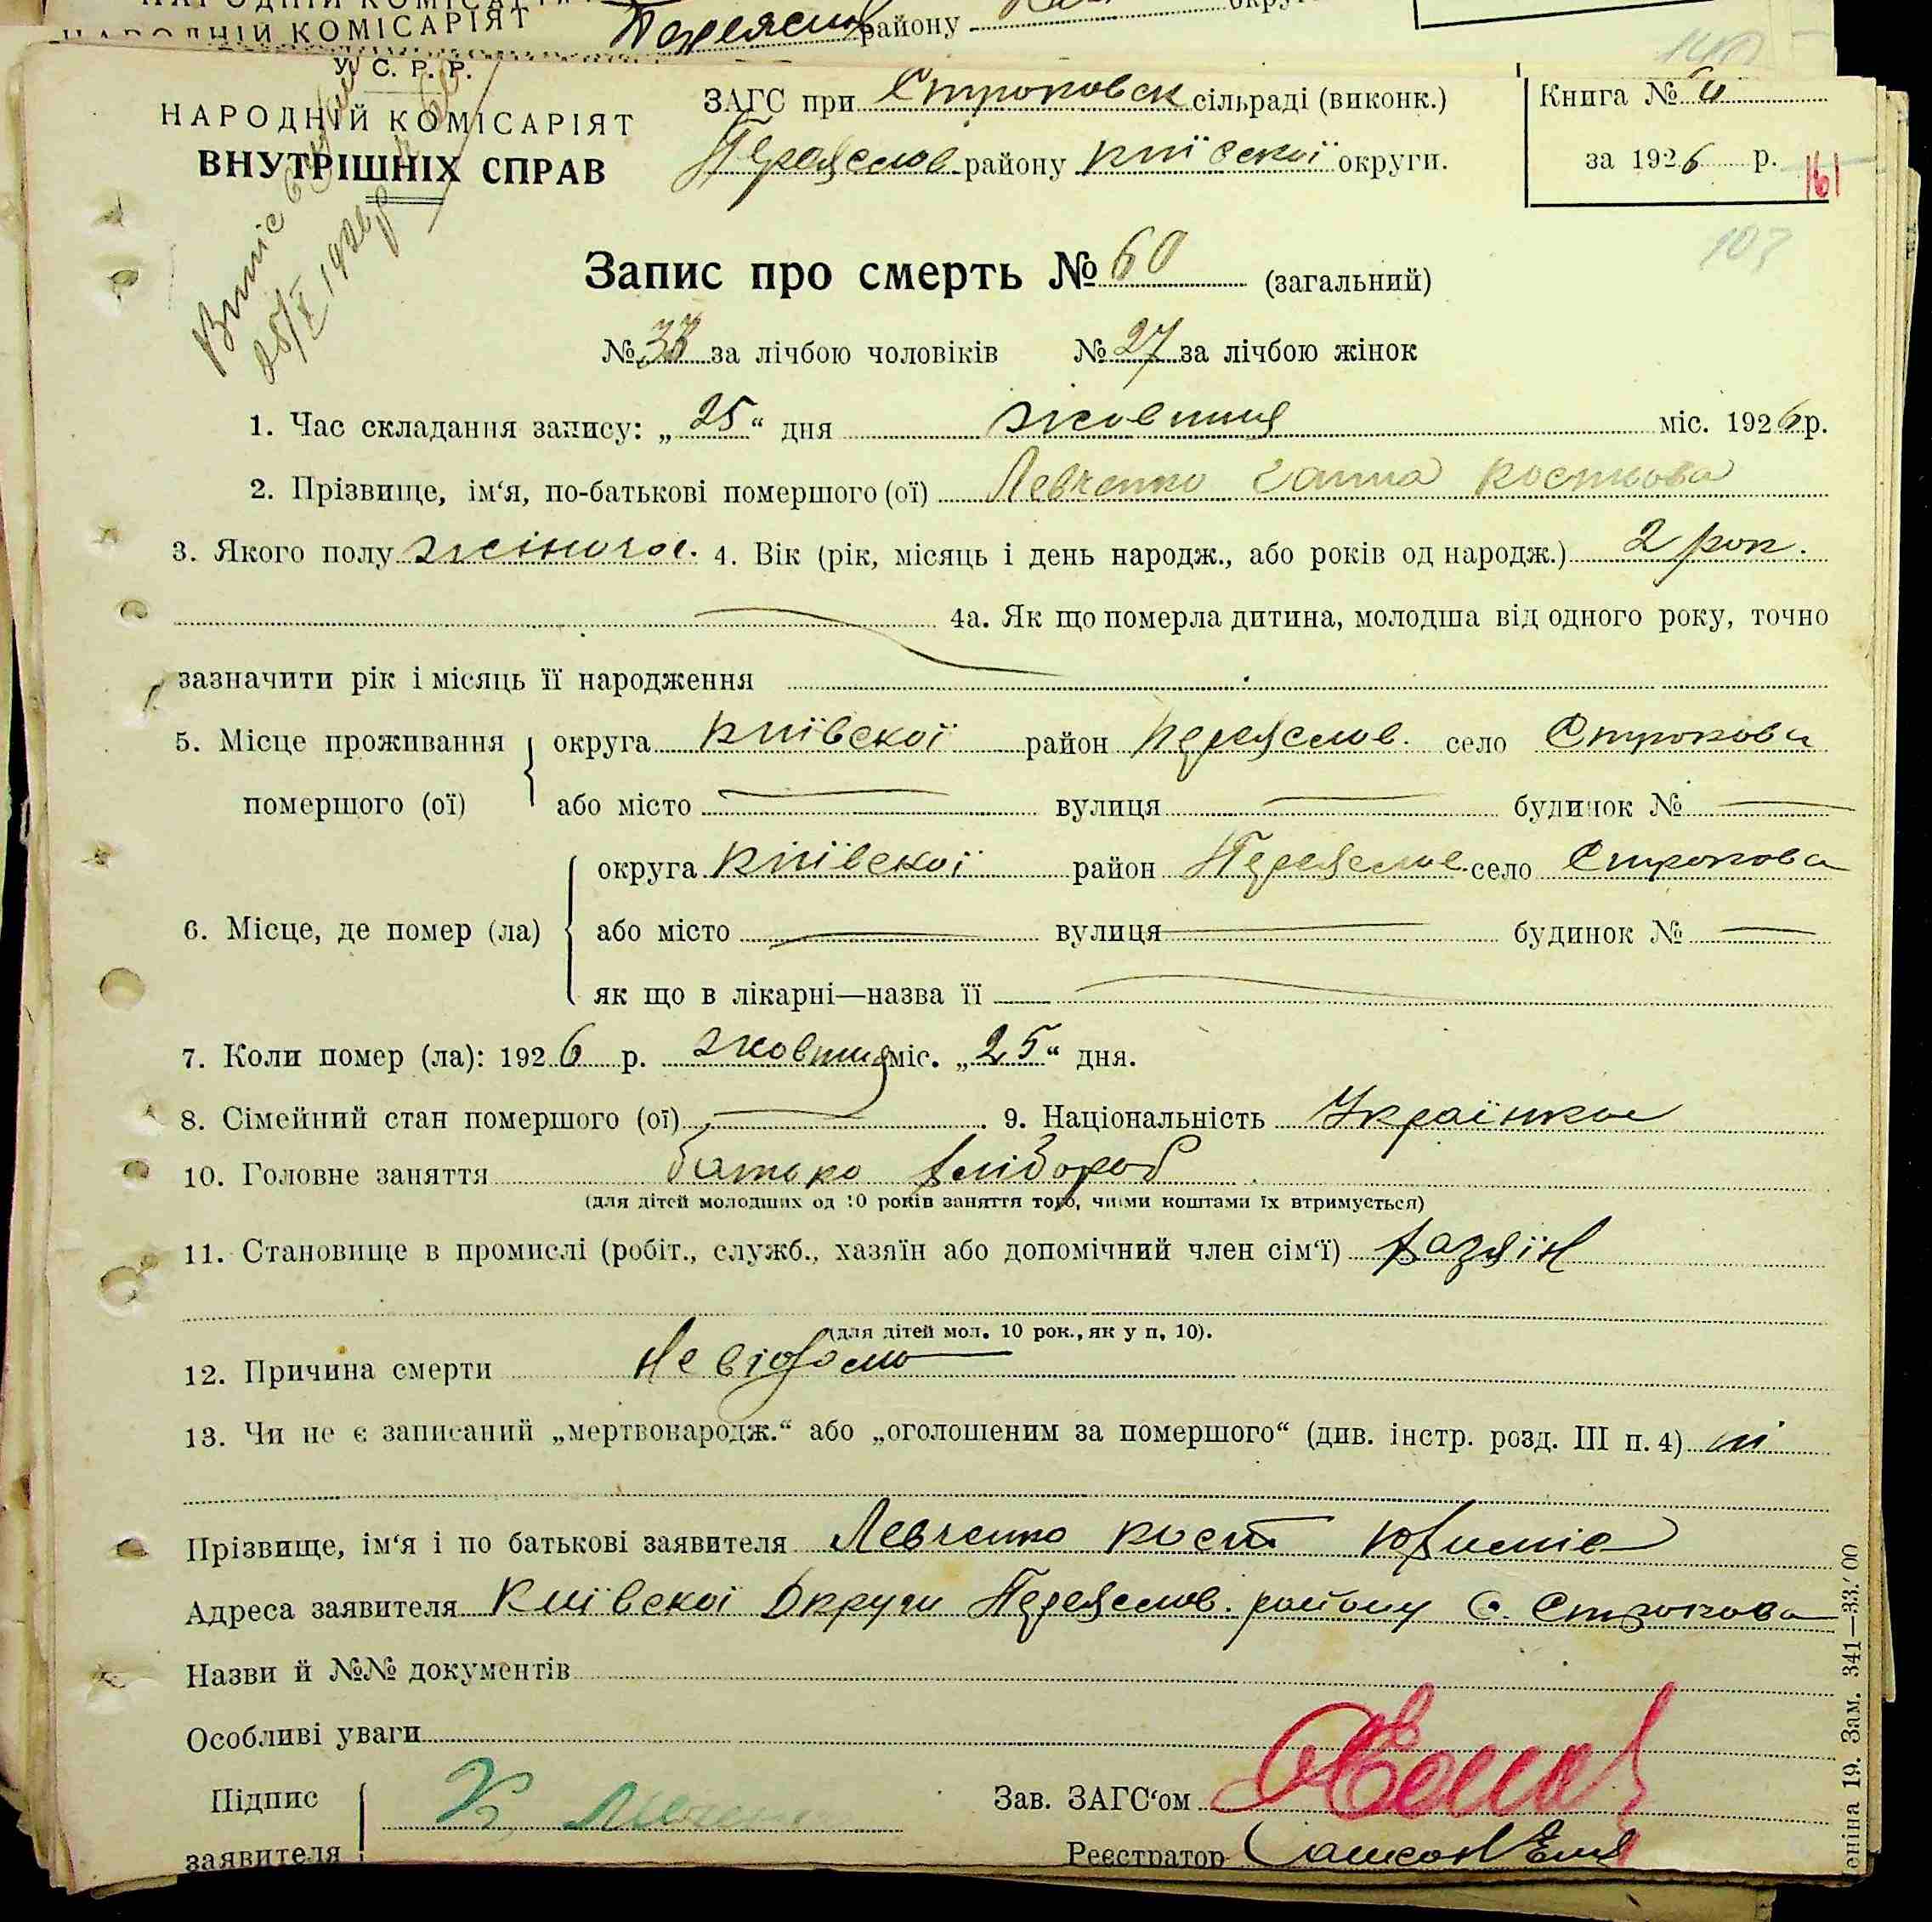 НАРОДНІЙ КОМІСАРІЯТ району
У. С. Р. Р.
НАРОДНІЙ КОМІСАРІЯТ
ВНУТРІШНІХ СПРАВ
ЗАГС при Строковск сільраді (виконк.)
Переяслов району Київської округи.
Книга №
за 1926 р. 161
103
Запис про смерть № 60 (загальний)
№ 33 за лічбою чоловіків № 27 за лічбою жінок
1. Час складання запису: „25“ дня жовтня міс. 1926 р.
2. Прізвище, ім‘я, по-батькові помершого (ої) Левченко Ганна Костьова
3. Якого полу жіночое. 4. Вік (рік, місяць і день народж., або років од народж.) 2 рок.
4а. Як що померла дитина, молодша від одного року, точно
зазначити рік і місяць її народження
5. Місце проживання помершого (ої) округа Київскої район Переяслов. село Строкова
або місто вулиця будинок №
6. Місце, де помер (ла) округа Київскої район Переяслов. село Строкова
або місто вулиця будинок №
як що в лікарні—назва її
7. Коли помер (ла): 1926 р. жовтня міс. „25“ дня.
8. Сімейний стан помершого (ої) . 9. Національність Українка
10. Головне заняття батько хлібороб
(для дітей молодших од 10 років заняття того, чиїми коштами їх втримується)
11. Становище в промислі (робіт., служб., хазяїн або допомічний член сім‘ї) хазяїн
(для дітей мол. 10 рок., як у п. 10).
12. Причина смерти Невідомо
13. Чи не є записаний „мертвонародж.“ або „оголошеним за помершого“ (див. інстр. розд. III п. 4) ні
Прізвище, ім‘я і по батькові заявителя Левченко Кост. Юхимів
Адреса заявителя Київскої Округи Переяслов. району С. Строкова
Назви й №№ документів
Особливі уваги
Підпис заявителя К. Левченко
Зав. ЗАГС‘ом
Реєстратор
19. Зам. 341—33.